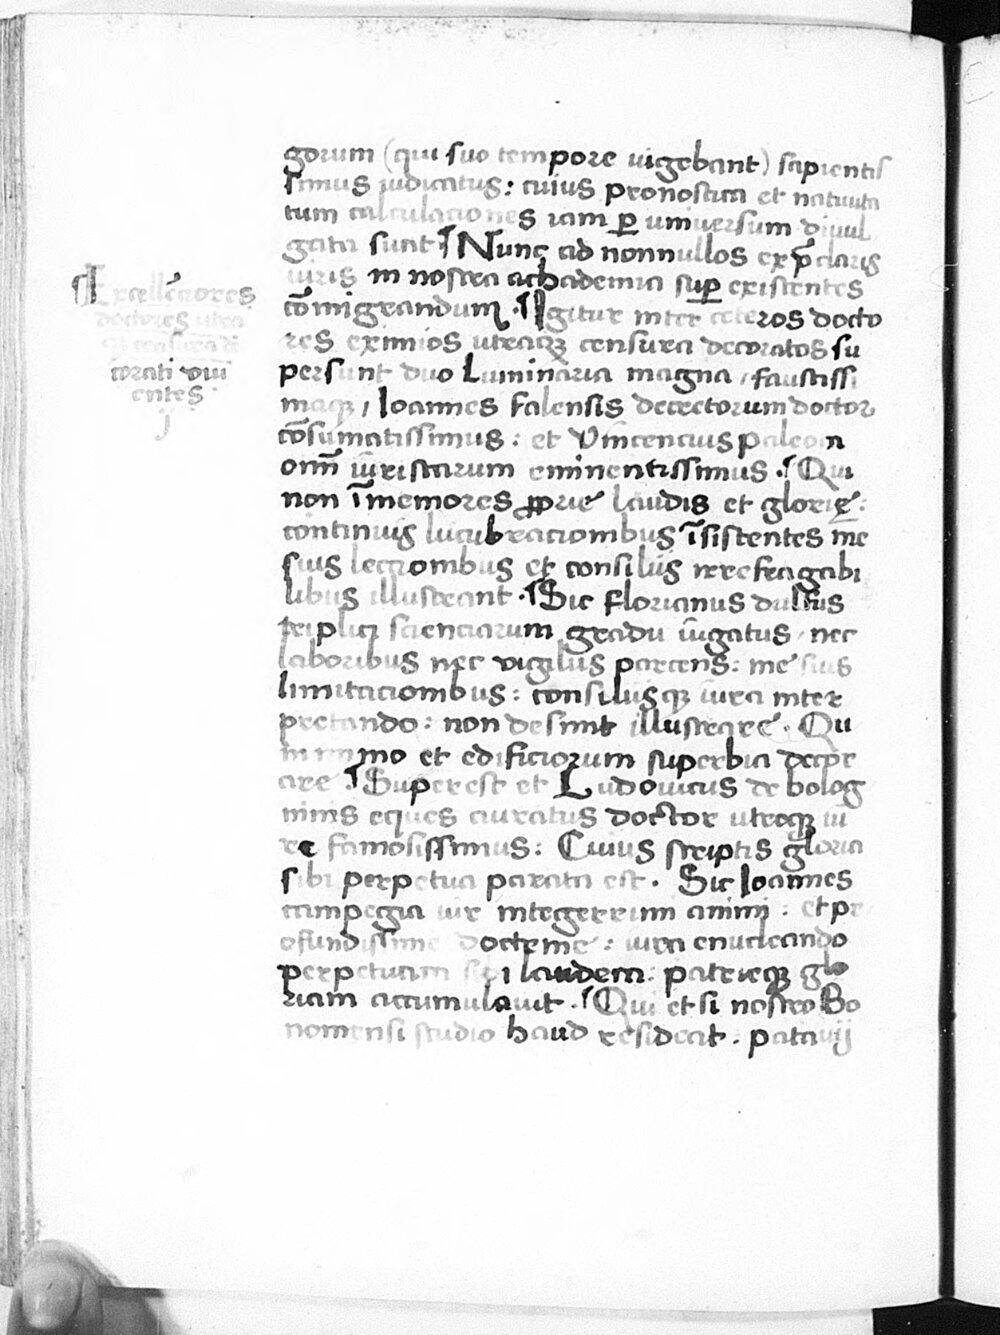 ¶Excellēciores
doctores utra
qꝫ censura de
corati viuī
entes
j
gorum (qui suo tempore uigebant) sapientis
simus iudicatus: cuius pronostica et natiuita
tum calculaciones iam ꝑ uniuersum diuul
gata sunt ¶Nunc ad nonnullos ex p̄claris
uiris in nostra achademia suꝑ existentes
cōmigrandum. ¶Igitur inter ceteros docto
res eximios utraqꝫ censura decoratos su
persunt duo Luminaria magna, faustissi
maqꝫ, Ioannes Falensis decretorum doctor
cōsumatissimus: et Vincencius paleoin
om̄ iuristarum eminentissimus. ¶Qui
non īmemores ꝓprie laudis et glorię:
continuis lucubracionibus īsistentes me
suis leccionibus et consiliis irrefragabi
libus illustrant. ¶Sic Florianus dulfus
triplici scienciarum gradu iugatus, nec
laboribus nec vigiliis parcens: me suis
limitacionibus: consiliisqꝫ iura inter
pretando: non desinit illustrare. Qu
in immo et edificiorum superbia decor
are ¶Superest et Ludouicus de bolog
ninis eques auratus doctor utroqꝫ iu
re famosissimus: Cuius scriptis gloria
sibi perpetua parata est. Sic Ioannes
campegia uir integerrimi animi: et pr
ofundissime doctrine: iura enucleando
perpetuam sibi laudem: patrieqꝫ glo
riam accumulauit. ¶Qui et si nostro Bo
nomensi studio haud resideat: patauij